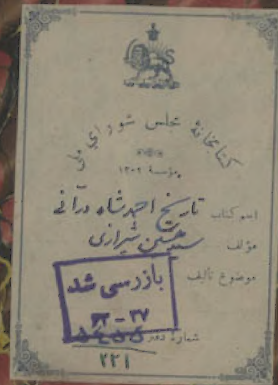 کتابخانهٔ مجلس شورای ملی
مؤسسه ۱۳۰۲
اسم کتاب تاریخ احمد شاه درانی
مؤلف سید حسین شیرازی
موضوع تألیف
بازرسی شد
۳۷ -
شمارهٔ دفتر
۲۲۱